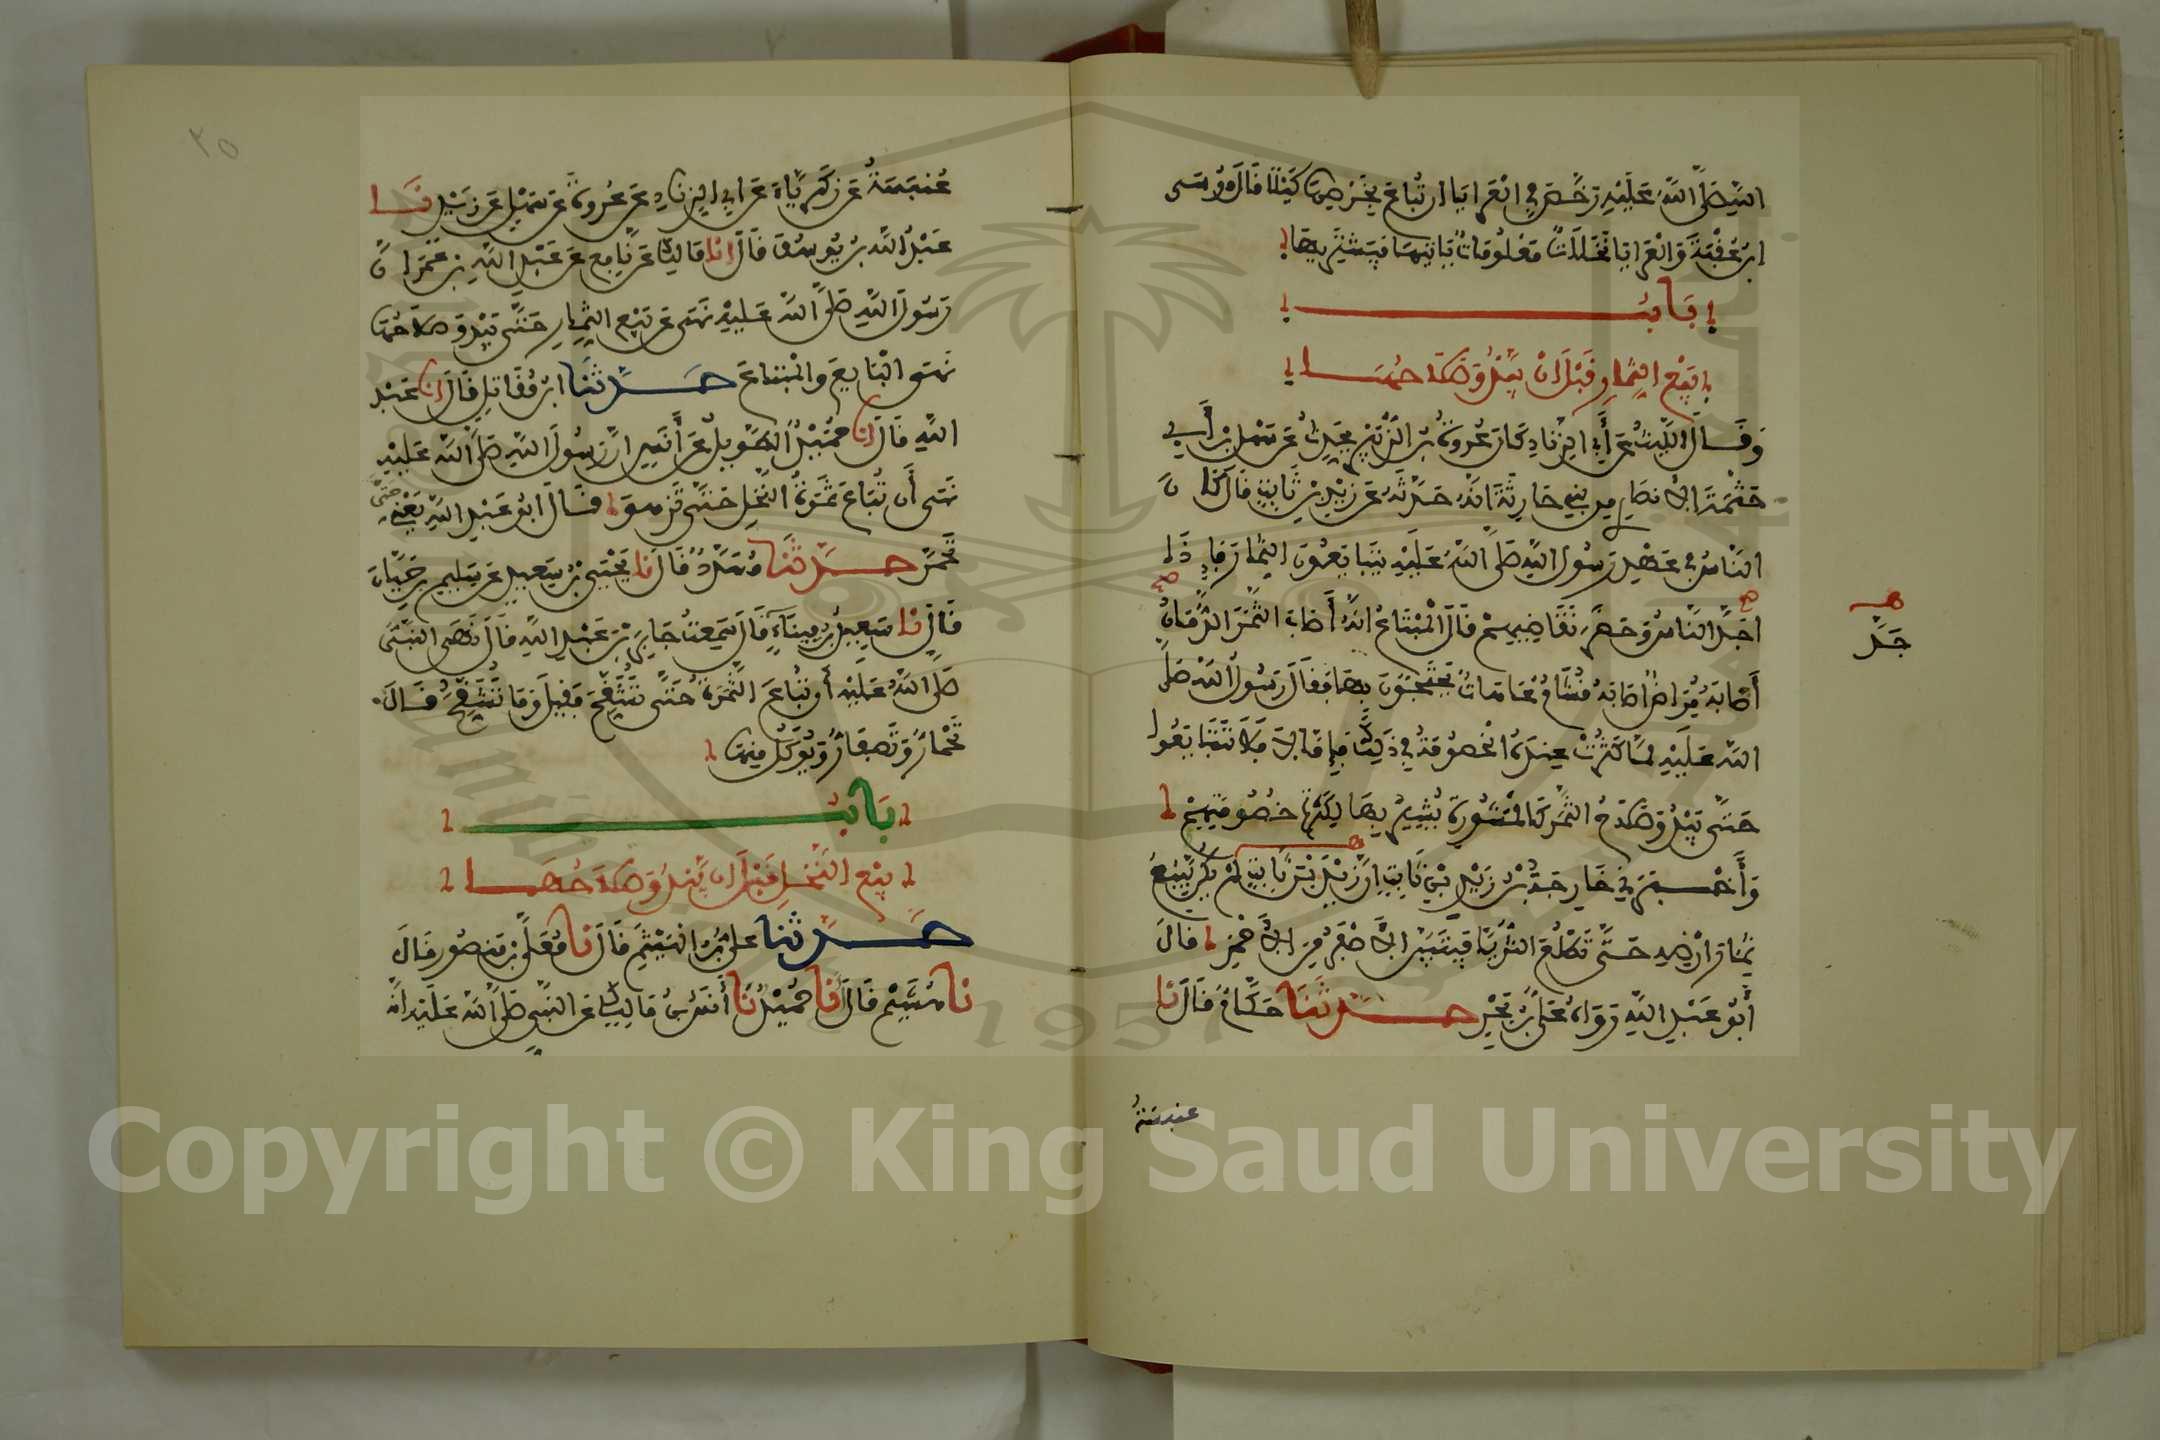 النبي صلى الله عليه رخص في العرايا ان تباع بخرصها كيلا قال موسى
ابن عقبة والعرايا نخلات معلومات ياتيها فيشتريها
باب
بيع الثمار قبل ان يبدو صلاحها
وقال الليث عن أبي الزناد كان عروة بن الزبير يحدث عن سهل بن أبي
حثمة الانصاري من بني حارثة انه حدثه عن زيد بن ثابت قال كان
الناس في عهد رسول الله صلى الله عليه يتبايعون الثمار فاذا
اجد الناس وحضر تقاضيهم قال المبتاع انه أصاب الثمر الدمان
أصابه مراض اصابه قشام عاهات يحتجون بها فقال رسول الله صلى
الله عليه لما كثرت عنده الخصومة في ذلك فإما لا فلا تتبايعوا
حتى يبدو صلاح الثمر كالمشورة يشير بها لكثرة خصومتهم
وأخبرني خارجة بن زيد بن ثابت ان زيد بن ثابت لم يكن يبيع
ثمار ارضه حتى تطلع الثريا فيتبين الاصفر من الاحمر قال
أبو عبد الله رواه علي بن بحر حدثنا حكام قال نا
عنبسة
جد
٢٥
عنبسة عن زكرياء عن ابي الزناد عن عروة عن سهل عن زيد نا
عبد الله بن يوسف قال انا مالك عن نافع عن عبد الله بن عمر ان
رسول الله صلى الله عليه نهى عن بيع الثمار حتى يبدو صلاحها
نهى البايع والمبتاع حدثنا ابن مقاتل قال انا عبد
الله قال انا حميد الطويل عن أنس ان رسول الله صلى الله عليه
نهى أن تباع ثمرة النخل حتى تزهو قال ابو عبد الله يعني حتى
تحمر حدثنا مسدد قال نا يحيى بن سعيد عن سليم بن حيان
قال نا سعيد بن ميناء قال سمعت جابر بن عبد الله قال نهى النبي
صلى الله عليه أن تباع الثمرة حتى تشقح فقيل وما تشقح قال
تحمار وتصفار ويوكل منها
باب
بيع النخل قبل ان يبدو صلاحها
حدثنا علي بن الهيثم قال نا معلى بن منصور قال
نا هشيم قال أنا حميد نا أنس بن مالك عن النبي صلى الله عليه انه
Copyright © King Saud University
1957